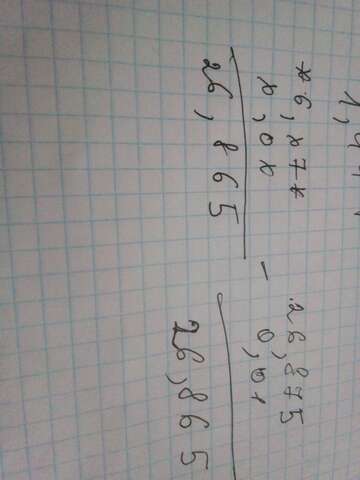 1,44
*6,*7*
*,0*
26,865
−
26,875
0,01
26,865